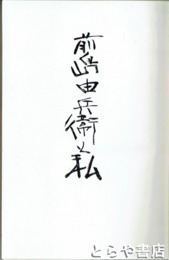 前島由兵衛と私
とらや書店